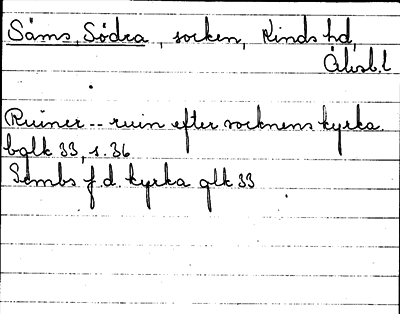 Säms, Södra, socken, Kinds hd,
Älvsb.l
Ruiner -- ruin efter socknens kyrka.
bglk 33, s. 36
Sembs f.d. kyrka glk 33